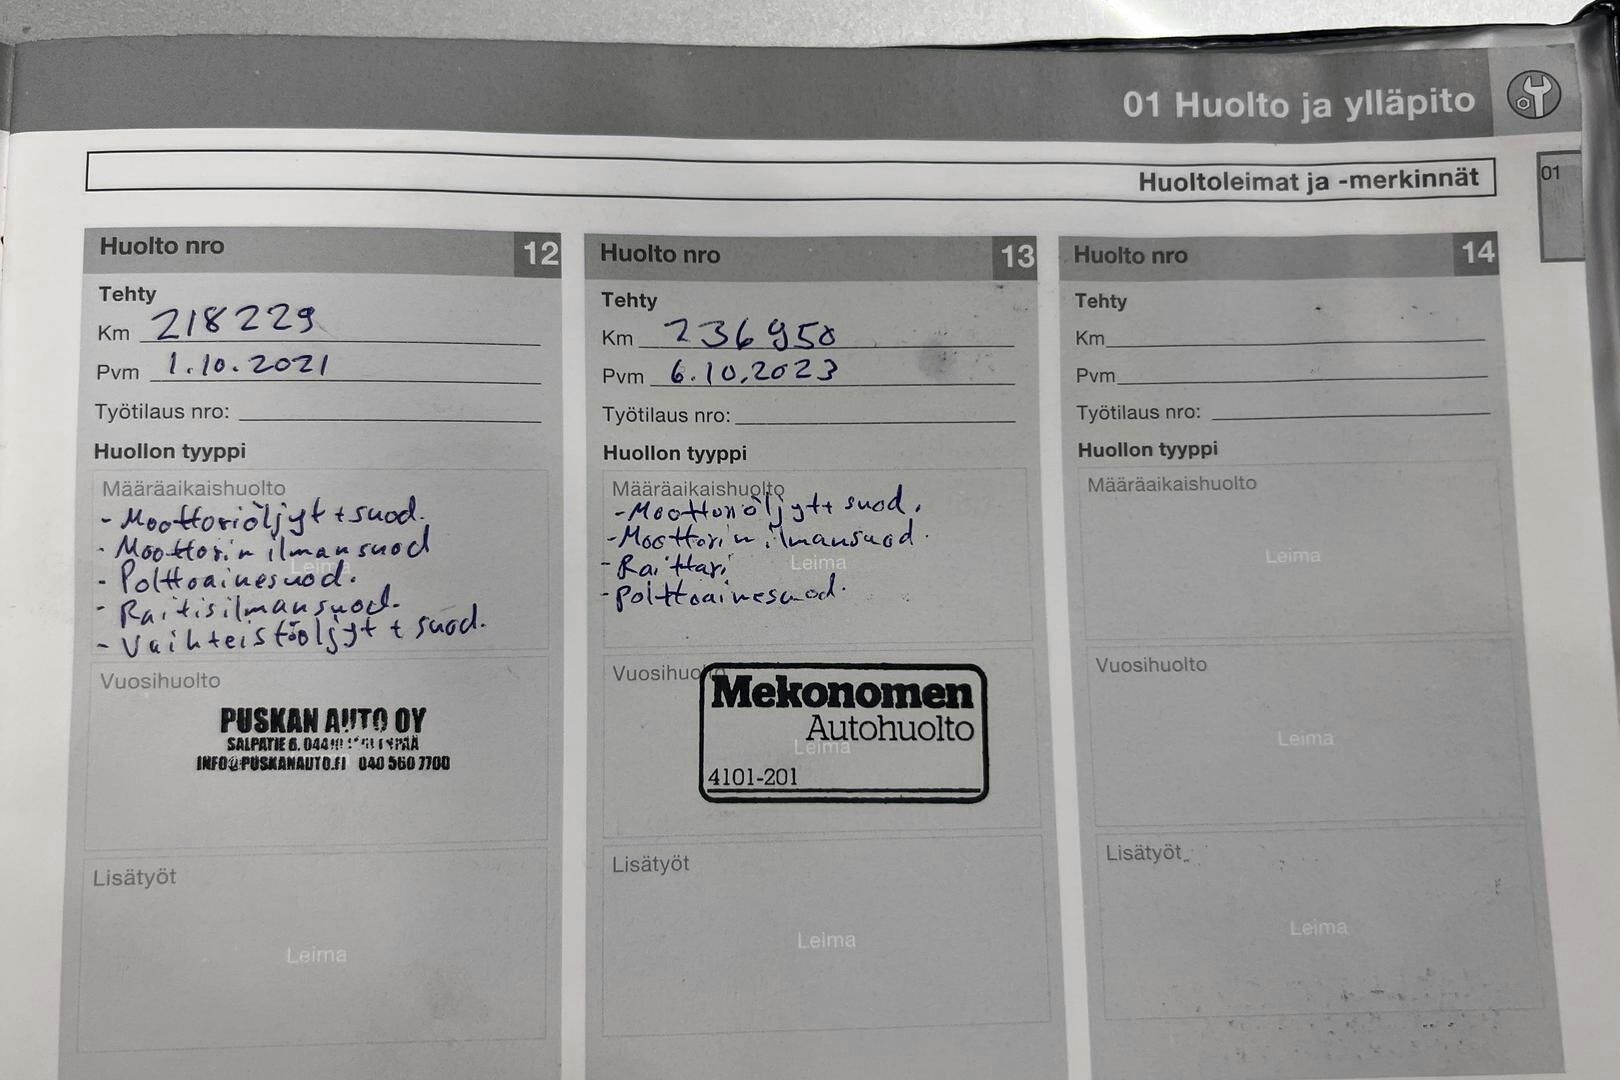 01 Huolto ja ylläpito
01
Huoltoleimat ja -merkinnät
Huolto nro 12
Tehty
Km 218229
Pvm 1.10.2021
Työtilaus nro:
Huollon tyyppi
Määräaikaishuolto
- Moottoriöljyt + suod.
- Moottorin ilmansuod
Leima
- Polttoainesuod.
- Raitisilmansuod.
- Vaihteistööljyt + suod.
Vuosihuolto
PUSKAN AUTO OY
SALPATIE 6.
INFO@PUSKANAUTO.FI 040 560 7700
Lisätyöt
Leima
Huolto nro 13
Tehty
Km 236950
Pvm 6.10.2023
Työtilaus nro:
Huollon tyyppi
Määräaikaishuolto
- Moottoriöljyt + suod.
- Moottorin ilmansuod.
- Raittari
Leima
- Polttoainesuod.
Vuosihuolto
Mekonomen
Autohuolto
Leima
4101-201
Lisätyöt
Leima
Huolto nro 14
Tehty
Km
Pvm
Työtilaus nro:
Huollon tyyppi
Määräaikaishuolto
Leima
Vuosihuolto
Leima
Lisätyöt
Leima